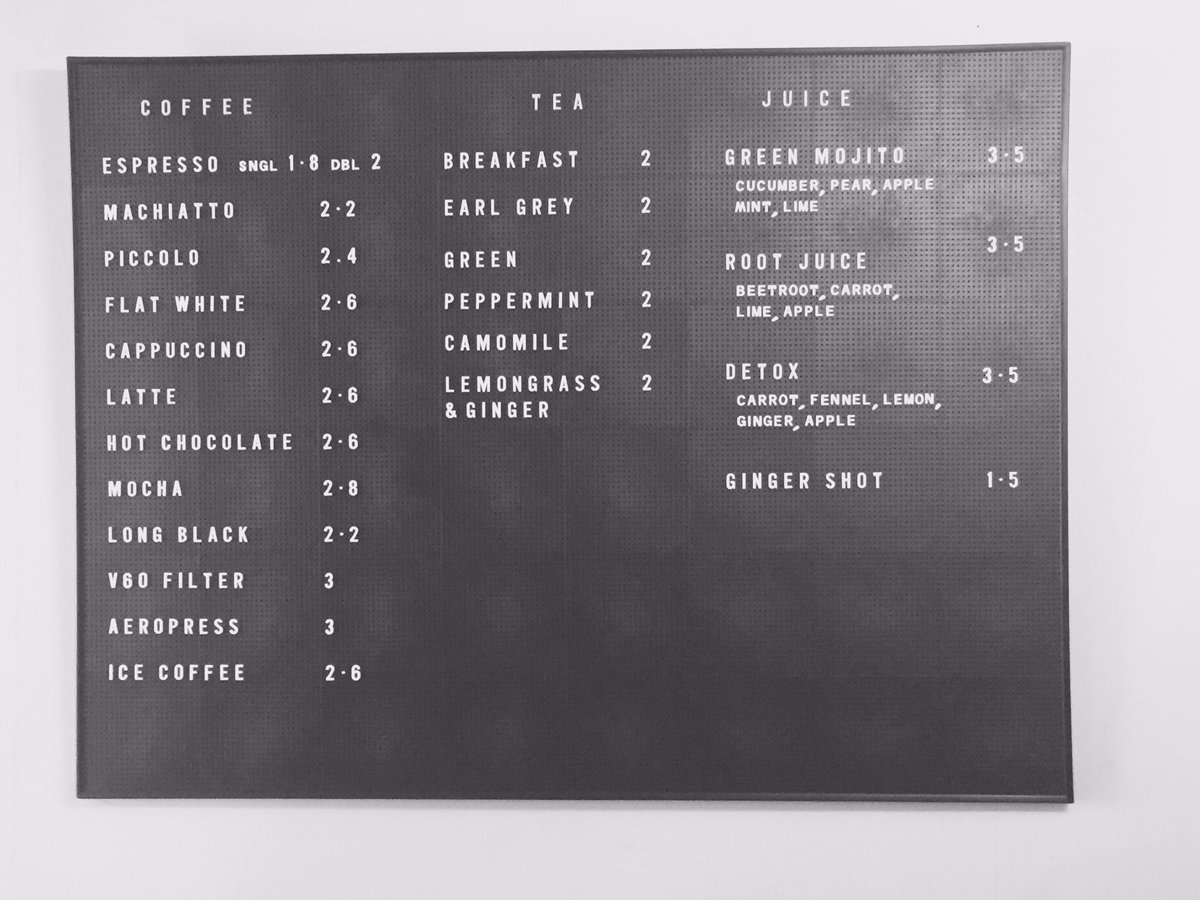 COFFEE
ESPRESSO SNGL 1·8 DBL 2
MACHIATTO 2·2
PICCOLO 2.4
FLAT WHITE 2·6
CAPPUCCINO 2·6
LATTE 2·6
HOT CHOCOLATE 2·6
MOCHA 2·8
LONG BLACK 2·2
V60 FILTER 3
AEROPRESS 3
ICE COFFEE 2·6
TEA
BREAKFAST 2
EARL GREY 2
GREEN 2
PEPPERMINT 2
CAMOMILE 2
LEMONGRASS 2
& GINGER
JUICE
GREEN MOJITO 3·5
CUCUMBER, PEAR, APPLE
MINT, LIME
ROOT JUICE 3·5
BEETROOT, CARROT,
LIME, APPLE
DETOX 3·5
CARROT, FENNEL, LEMON,
GINGER, APPLE
GINGER SHOT 1·5